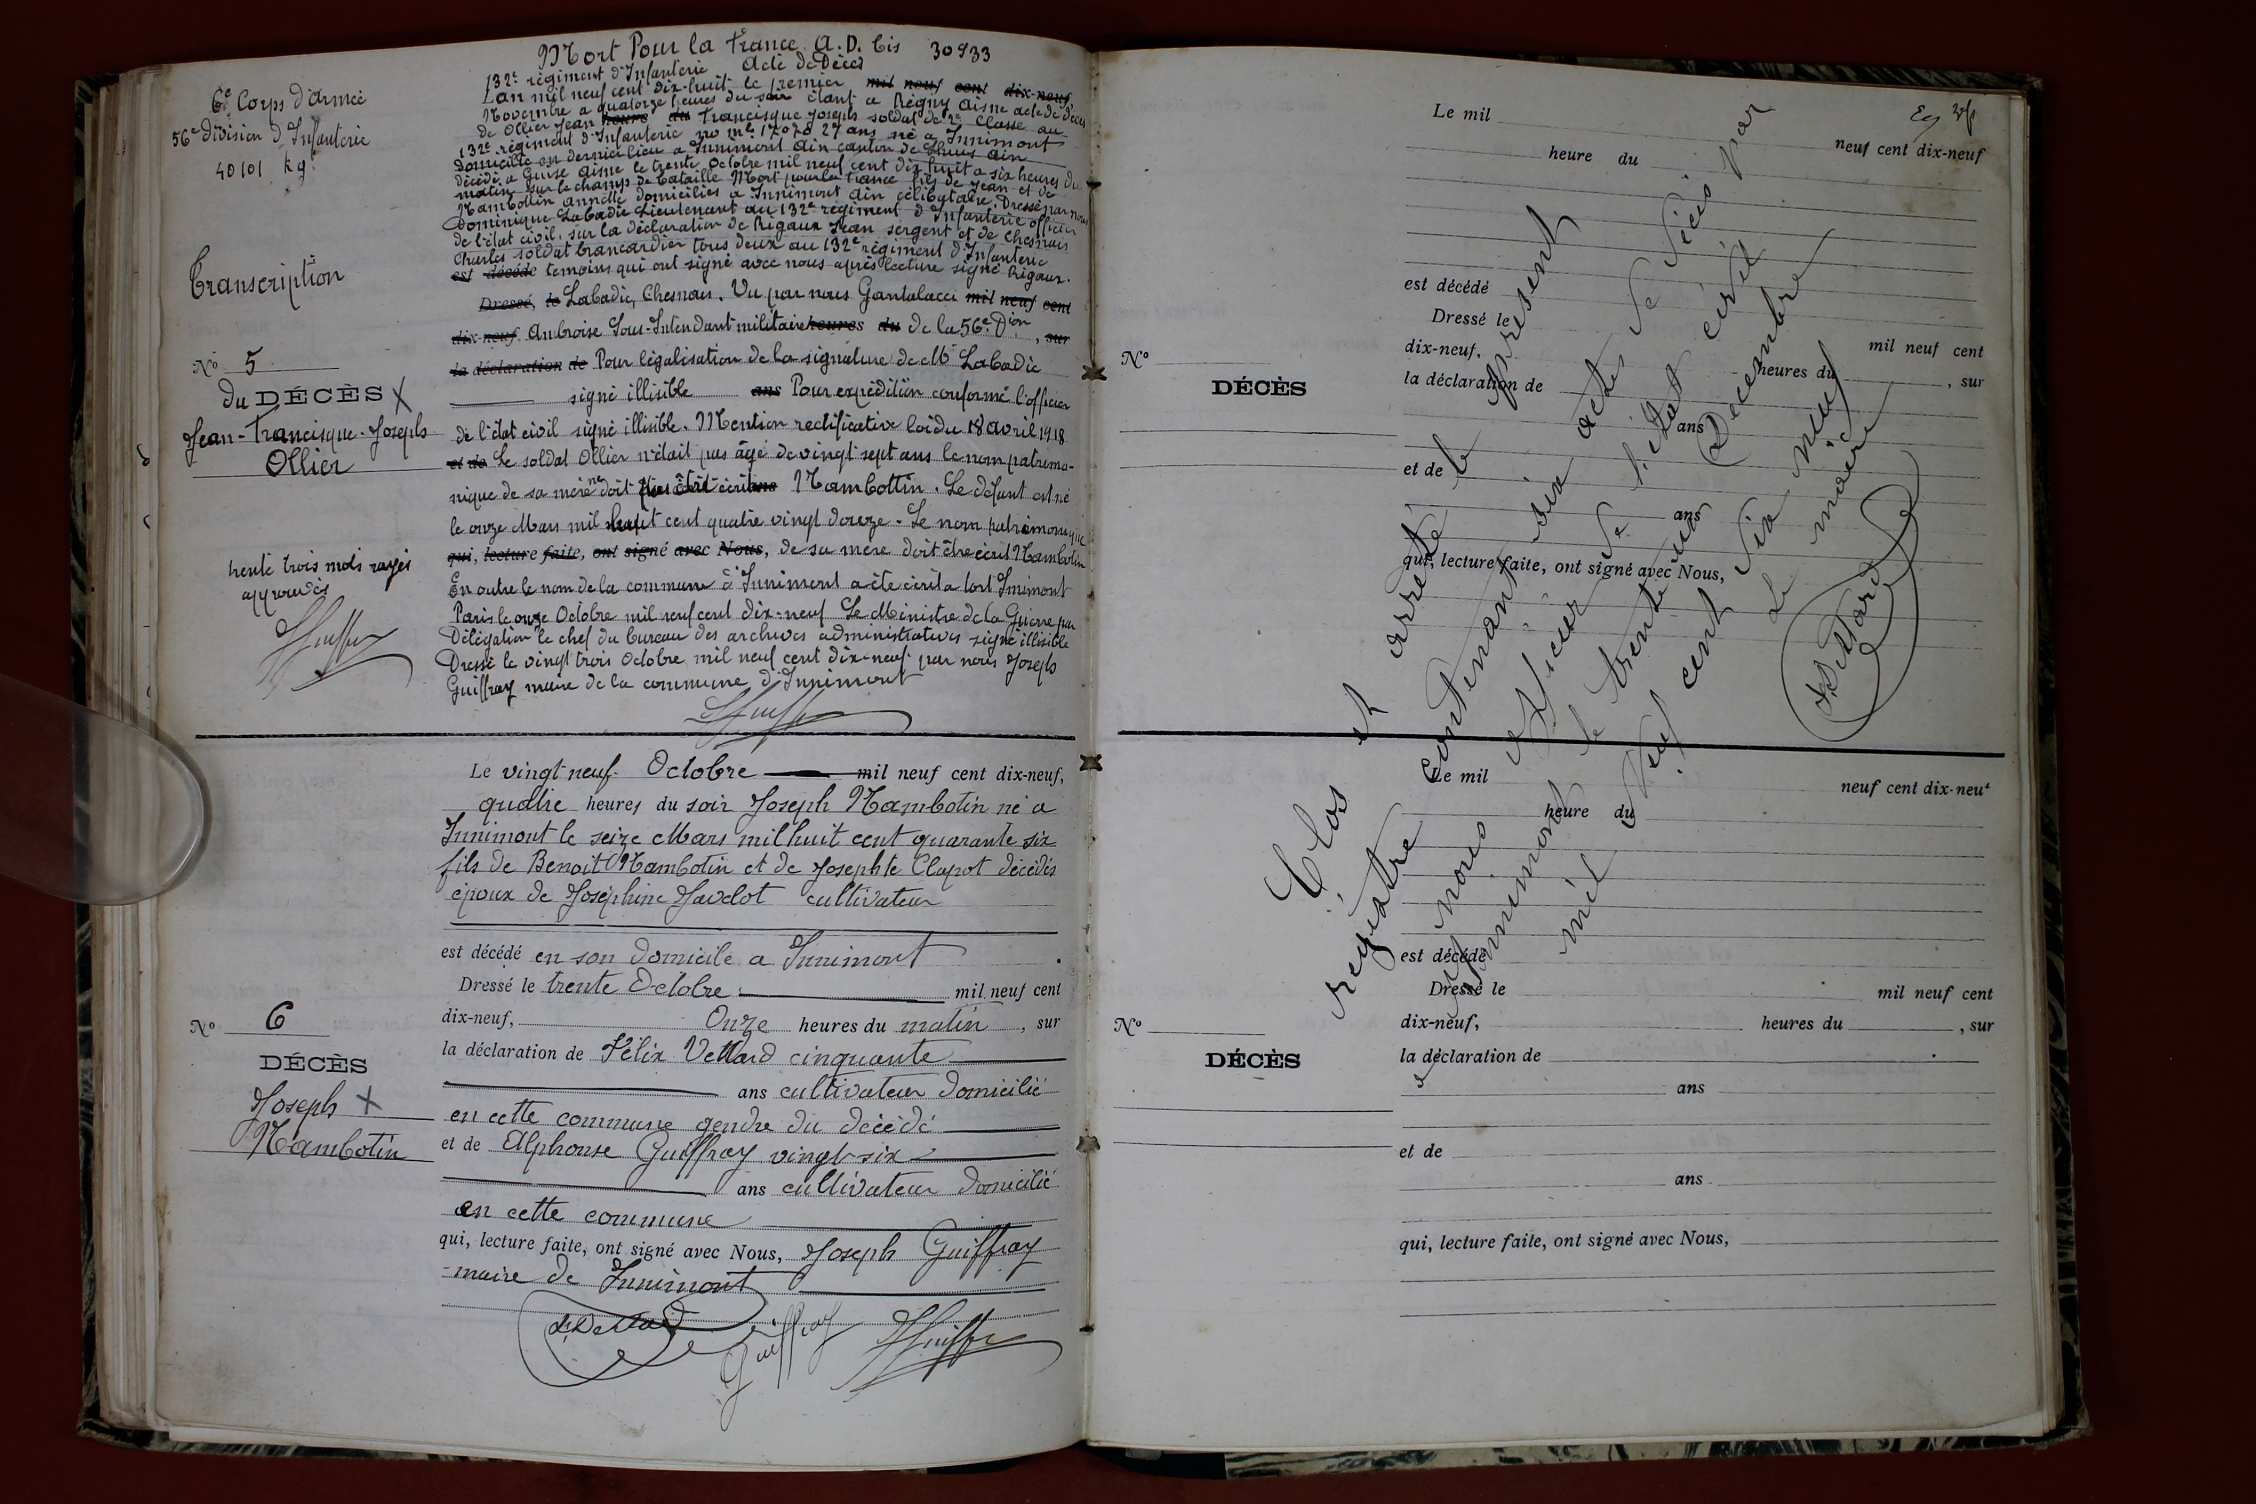 Mort Pour la France A.D. bis 30933
6e Corps d'armée
56e division d'Infanterie
40101 kg
Transcription
No 5
du DÉCÈS X
Jean-Francisque-Joseph
Ollier
trente trois mots rayés
approuvés
132e régiment d'Infanterie Acte de Décès
L'an mil neuf cent dix-huit le premier mil neuf cent dix-neuf
Novembre a quatorze heures du soir étant a Régny Aisne acte de décès
de Ollier Jean heure du Francisque Joseph soldat de 2e Classe au
132e régiment d'Infanterie no mle 27 ans né a Innimont
domicilié en dernier lieu a Innimont Ain canton de Ain
décédé a Guise Aisne le trente Octobre mil neuf cent dix huit a six heures du
matin sur le champs de bataille Mort pour la France fils de Jean et de
Mambottin annette domiciliés a Innimont Ain célibataire. Dressé par nous
Dominique Labadie Lieutenant au 132e régiment d'Infanterie officier
de l'état civil, sur la déclaration de Rigaux Jean sergent et de Chesnais
Charles soldat brancardier tous deux au 132e régiment d'Infanterie
est décédé temoins qui ont signé avec nous après lecture signé Rigaux.
Dressé, le Labadie, Chesnais. Vu par nous Gantalacci mil neuf cent
dix-neuf Ambroise Sous-Intendant militaire heures du de la 56e Dion, sur
la déclaration de Pour légalisation de la signature de Mr Labadie
signé illisible ans Pour expédition conforme l'officier
de l'état civil signé illisible. Mention rectificative loi du 18 avril 1918
et de Le soldat Ollier n'était pas âgé de vingt sept ans le nom patrimo-
nique de sa mère ne doit être écrit ans Mambottin. Le défunt est né
le onze Mars mil huit cent quatre vingt douze. Le nom patrimonique
qui, lecture faite, ont signé avec Nous, de sa mère doit être écrit Mambotin
En outre le nom de la commune d'Innimont a été écrit a tort Inimont
Paris le onze Octobre mil neuf cent dix-neuf Le Ministre de la Guerre par
Délégation le chef du bureau des archives administratives signé illisible
Dressé le vingt trois Octobre mil neuf cent dix-neuf par nous Joseph
Guiffray maire de la commune d'Innimont
No 6
DÉCÈS
Joseph X
Mambotin
Le vingt neuf Octobre mil neuf cent dix-neuf,
quatre heures du soir Joseph Mambotin né a
Innimont le seize Mars mil huit cent quarante six
fils de Benoit Mambotin et de Josephte Clapot décédés
époux de Joséphine Javelot cultivateur
est décédé en son domicile a Innimont
Dressé le trente Octobre mil neuf cent
dix-neuf, Onze heures du matin, sur
la déclaration de Félix Vettard cinquante
ans cultivateur domicilié
en cette commune gendre du décédé
et de Alphonse Guiffray vingt-six
ans cultivateur domicilié
en cette commune
qui, lecture faite, ont signé avec Nous, Joseph Guiffray
maire de Innimont
Guiffray
Le mil neuf cent dix-neuf
heure du
est décédé
Dressé le mil neuf cent
dix-neuf, heures du , sur
No
DÉCÈS
la déclaration de
ans
et de
ans
qui, lecture faite, ont signé avec Nous,
Clos et arrêté le présent
registre contenant six actes de décès par
nous officier de l'état civil
d'Innimont le trente un Décembre
mil neuf cent dix neuf
Le maire
Le mil neuf cent dix-neuf
heure du
est décédé
Dressé le mil neuf cent
dix-neuf, heures du , sur
No
DÉCÈS
la déclaration de
ans
et de
ans
qui, lecture faite, ont signé avec Nous,